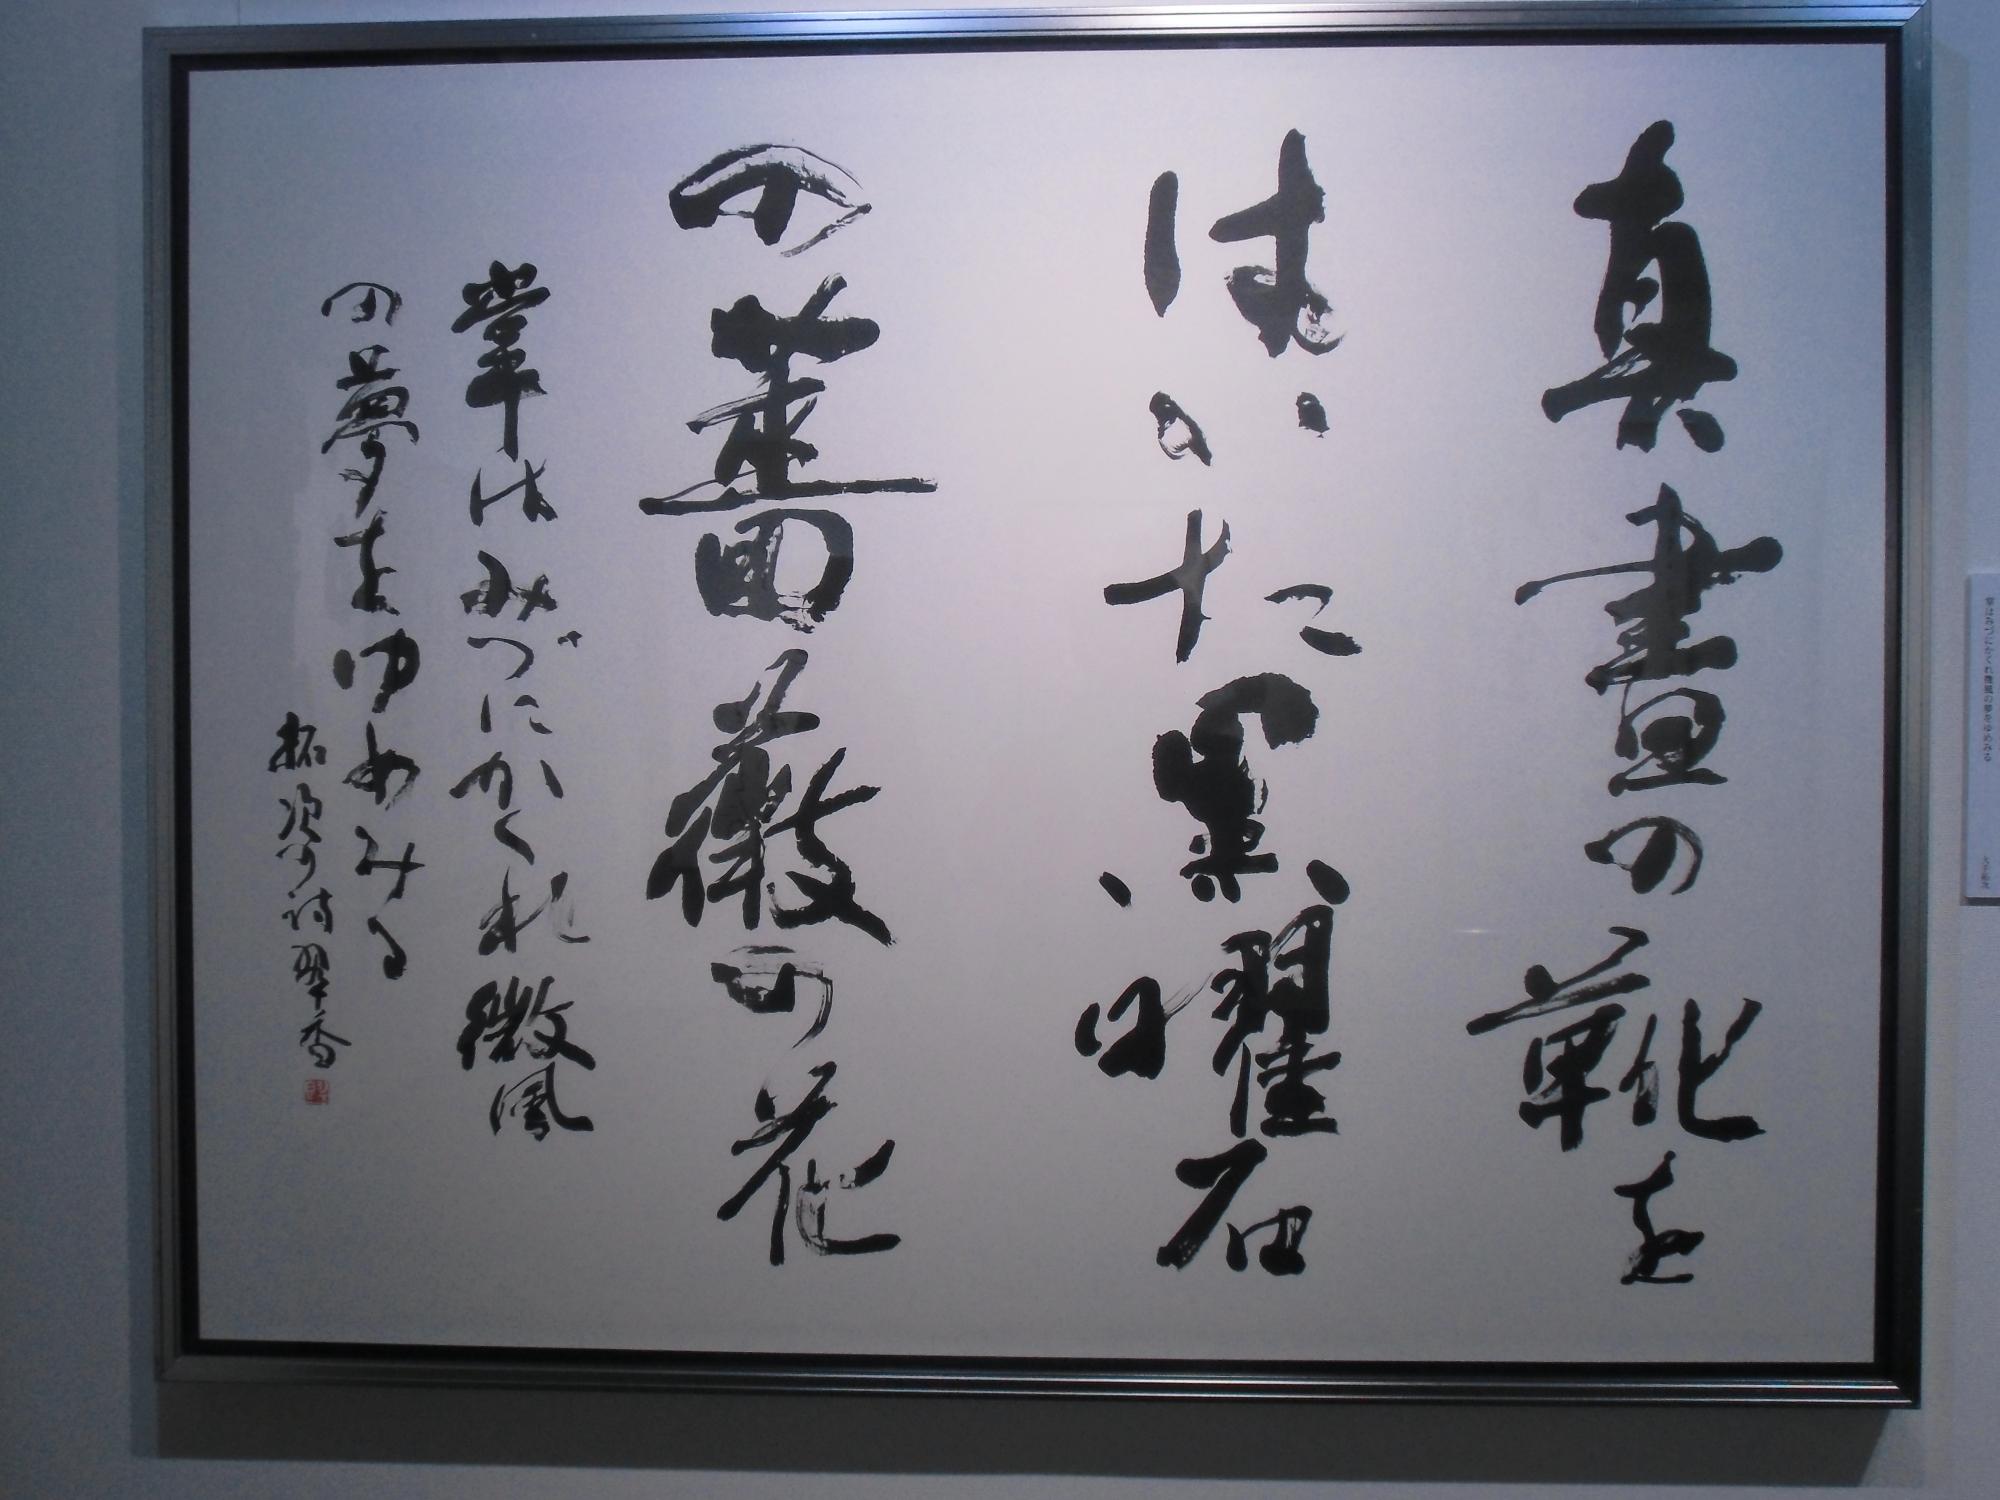 真晝の靴を
はいた黒曜石
の薔薇の花
掌はみづにかくれ微風
の夢をゆめみる
拓次の詩 翠香
掌はみづにかくれ微風の夢をゆめみる
大手拓次